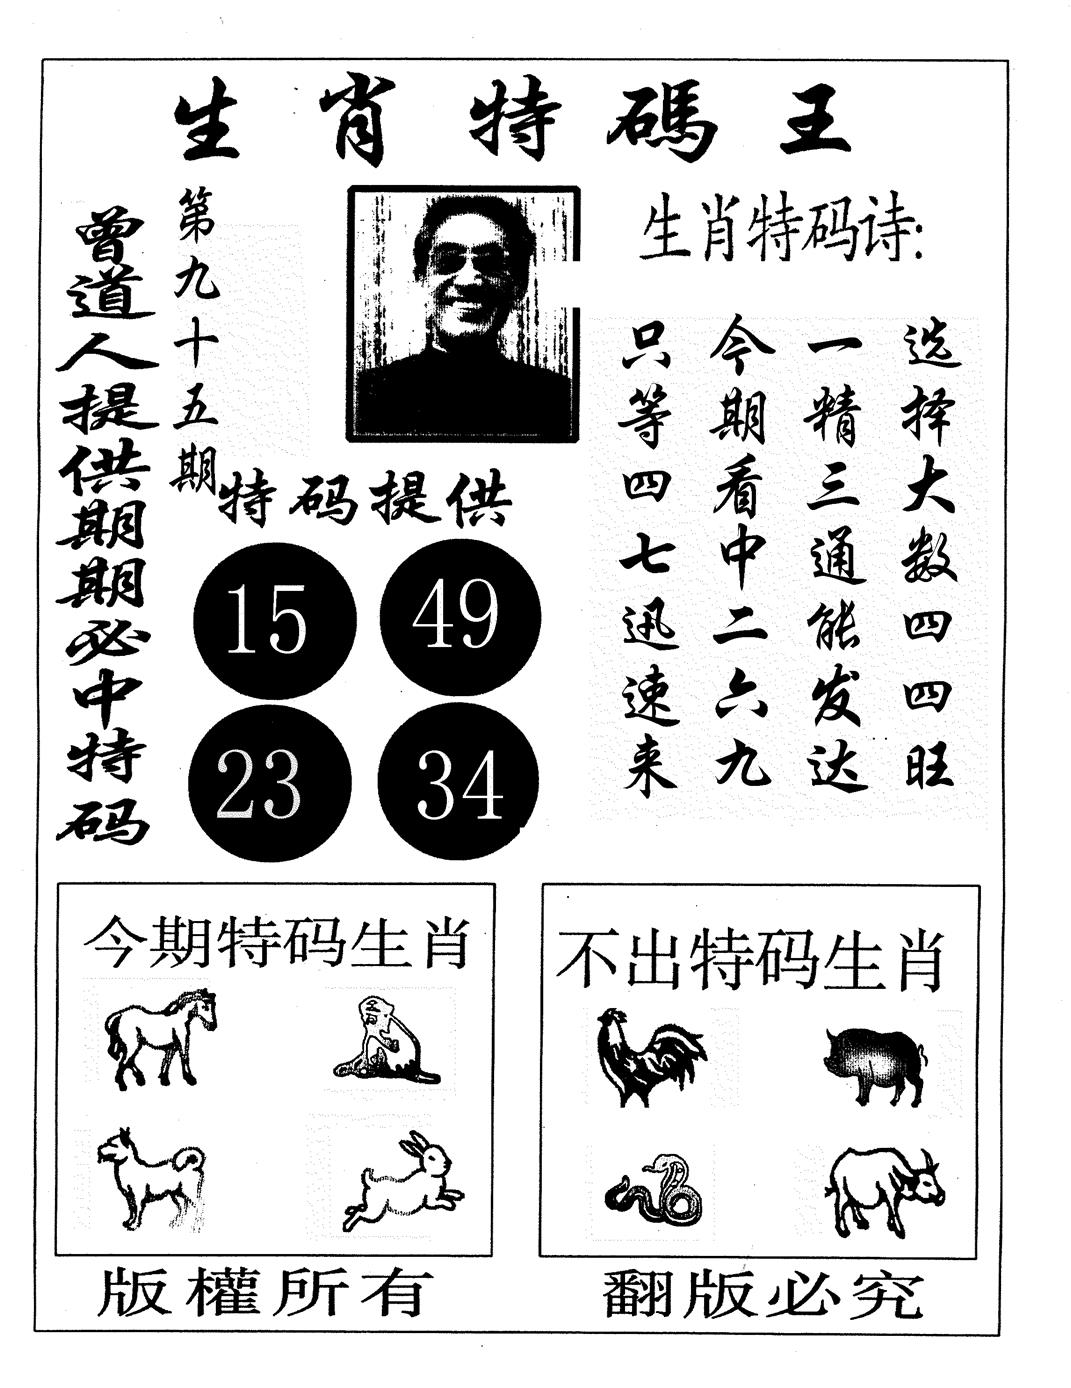 生肖特碼王
曾道人提供期期必中特码
第九十五期
生肖特码诗:
选择大数四四旺
一精三通能发达
今期看中二六九
只等四七迅速来
特码提供
15 49
23 34
今期特码生肖
不出特码生肖
版權所有
翻版必究